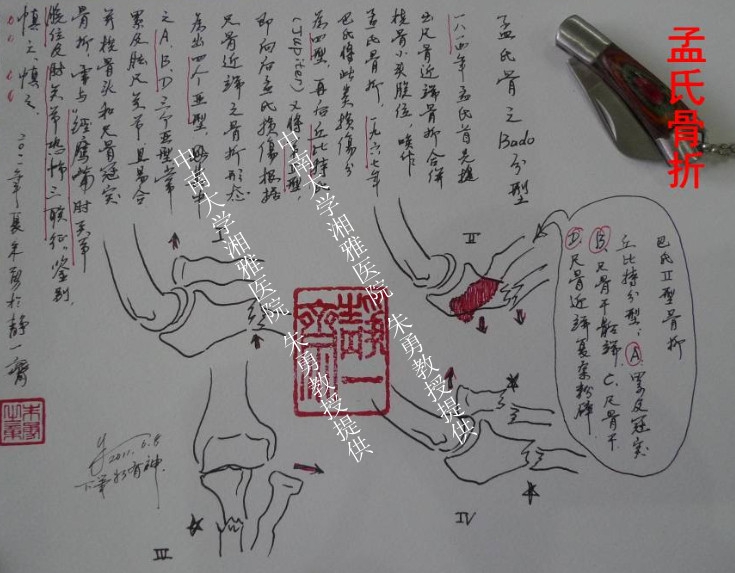 孟氏骨折
孟氏骨之Bado分型
一八一四年孟氏首先提
出尺骨近端骨折合併
桡骨小头脱位，唤作
孟氏骨折，一九六七年
巴氏将此类损傷分
為四型，再后丘比特
(Jupiter)又将
即向后孟氏損傷根据
尺骨近端之骨折形态
分出四个亚型
之A、B、D三个亚型常
累及肱尺关节且易合
并桡骨头和尺骨冠突
骨折，需与经鹰嘴肘关节
脱位及肘关节恐怖三联征鉴别，
慎之，慎之
二〇一一年夏朱勇於静一齋
巴氏II型骨折
丘比特分型：A.累及冠突
B.尺骨干骺端，C.尺骨干
D.尺骨近端复杂粉碎
I
II
III
IV
2011.6.8
下筆如有神
静一齋
中南大学湘雅医院 朱勇教授提供
中南大学湘雅医院 朱勇教授提供